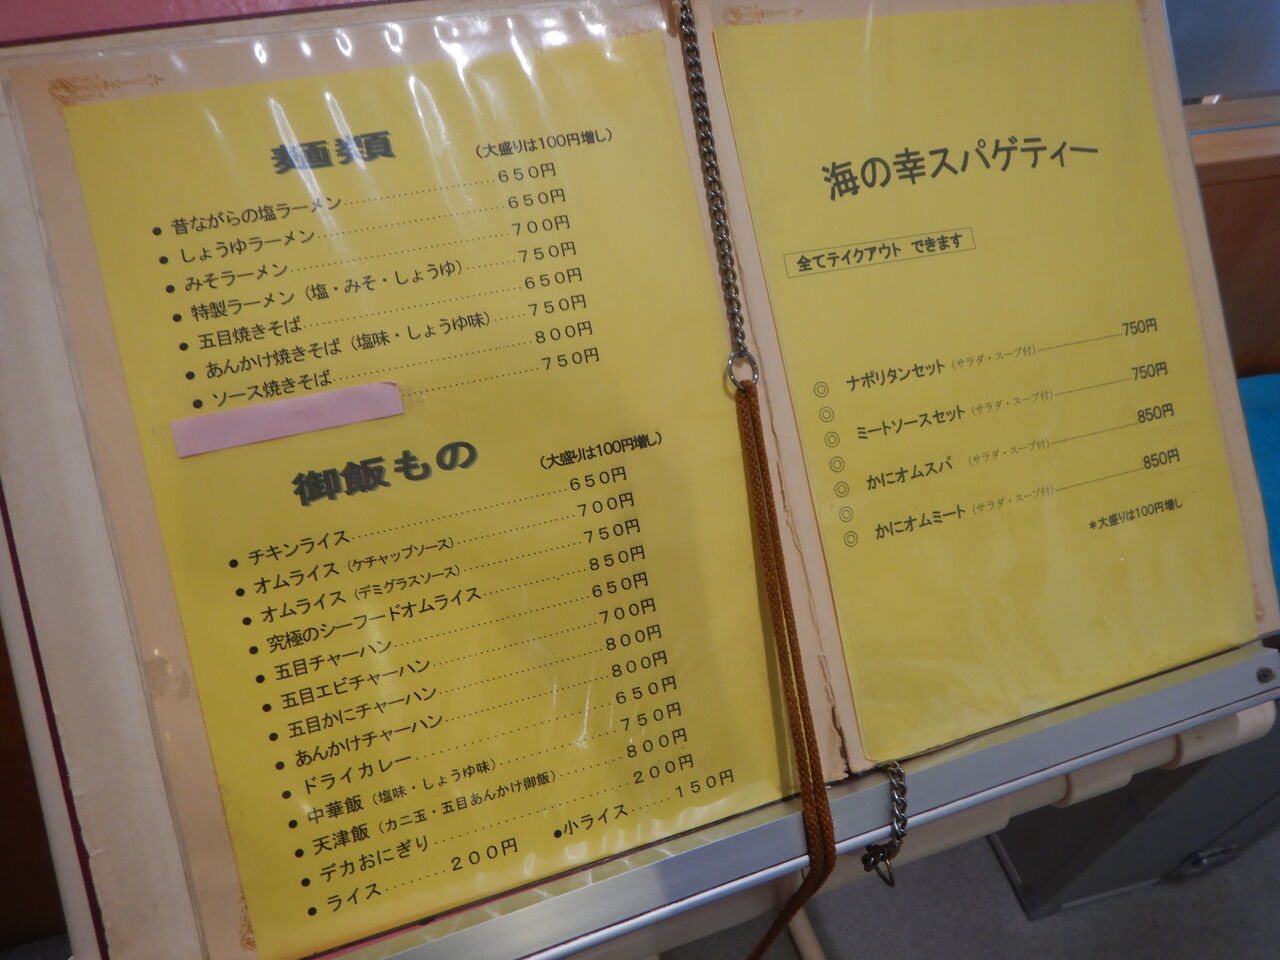 麺類 （大盛りは100円増し）
● 昔ながらの塩ラーメン 650円
● しょうゆラーメン 650円
● みそラーメン 700円
● 特製ラーメン（塩・みそ・しょうゆ） 750円
● 五目焼きそば 650円
● あんかけ焼きそば（塩味・しょうゆ味） 750円
● ソース焼きそば 800円
750円
御飯もの （大盛りは100円増し）
● チキンライス 650円
● オムライス（ケチャップソース） 700円
● オムライス（デミグラスソース） 750円
● 究極のシーフードオムライス 850円
● 五目チャーハン 650円
● 五目エビチャーハン 700円
● 五目かにチャーハン 800円
● あんかけチャーハン 800円
● ドライカレー 650円
● 中華飯（塩味・しょうゆ味） 750円
● 天津飯（カニ玉・五目あんかけ御飯） 800円
● デカおにぎり 200円
● ライス 200円 ●小ライス 150円
海の幸スパゲティー
全てテイクアウト できます
◎ ナポリタンセット（サラダ・スープ付） 750円
◎ ミートソースセット（サラダ・スープ付） 750円
◎ かにオムスパ （サラダ・スープ付） 850円
◎ かにオムミート（サラダ・スープ付） 850円
＊大盛りは100円増し